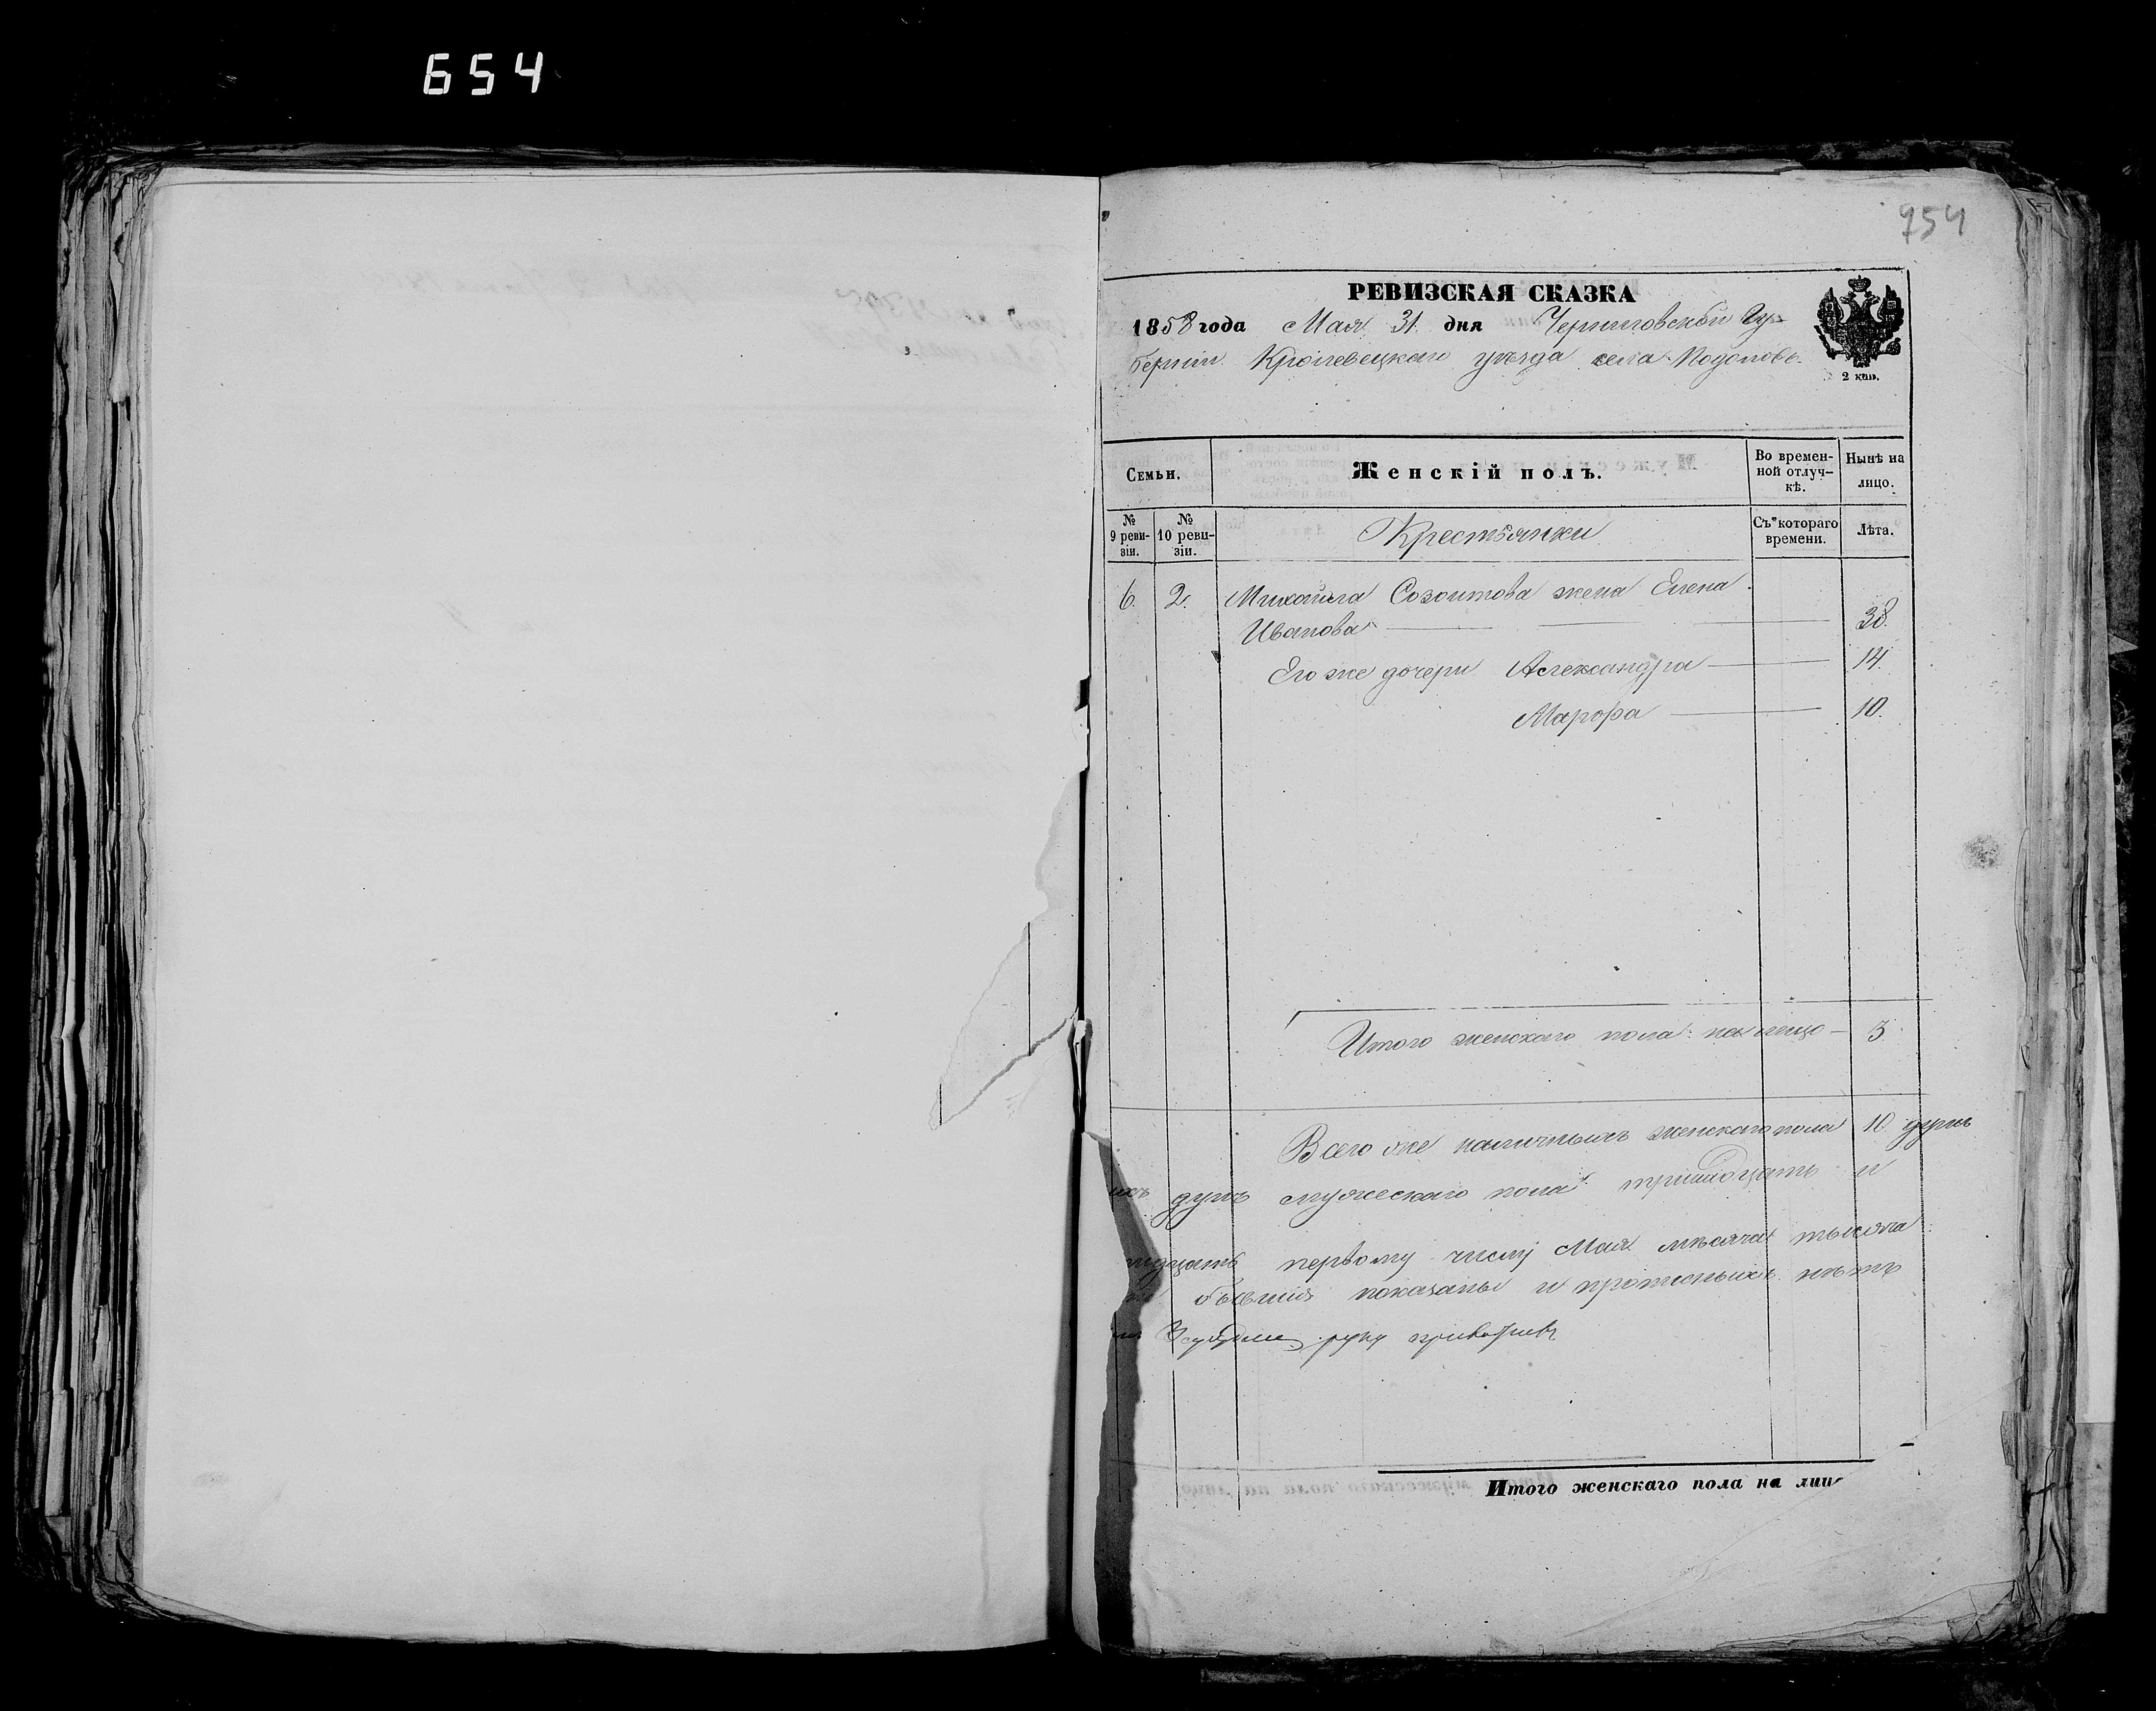 654
954
РЕВИЗСКАЯ СКАЗКА
1858 года Мая 31 дня Черниговской Гу-
берніи Кролевецкаго уѣзда села Подоловъ
2 коп.
Семьи.
Женскій полъ.
Во времен-
ной отлуч-
кѣ.
Нынѣ на
лицо.
№
9 реви-
зіи.
№
10 реви-
зіи.
Крестьянки
Съ котораго
времени.
Лѣта.
6. 2. Михайла Созонтова жена Елена
Иванова 38.
Его же дочери Александра 14.
Марфа 10.
Итого женскаго пола на лицо 3
Всего же наличныхъ женскаго пола 10 душъ
душъ мужескаго пола и
первому числу Мая мѣсяца тысяча
показаны и прописныхъ нѣтъ
руку приложилъ
Итого женскаго пола на лиц